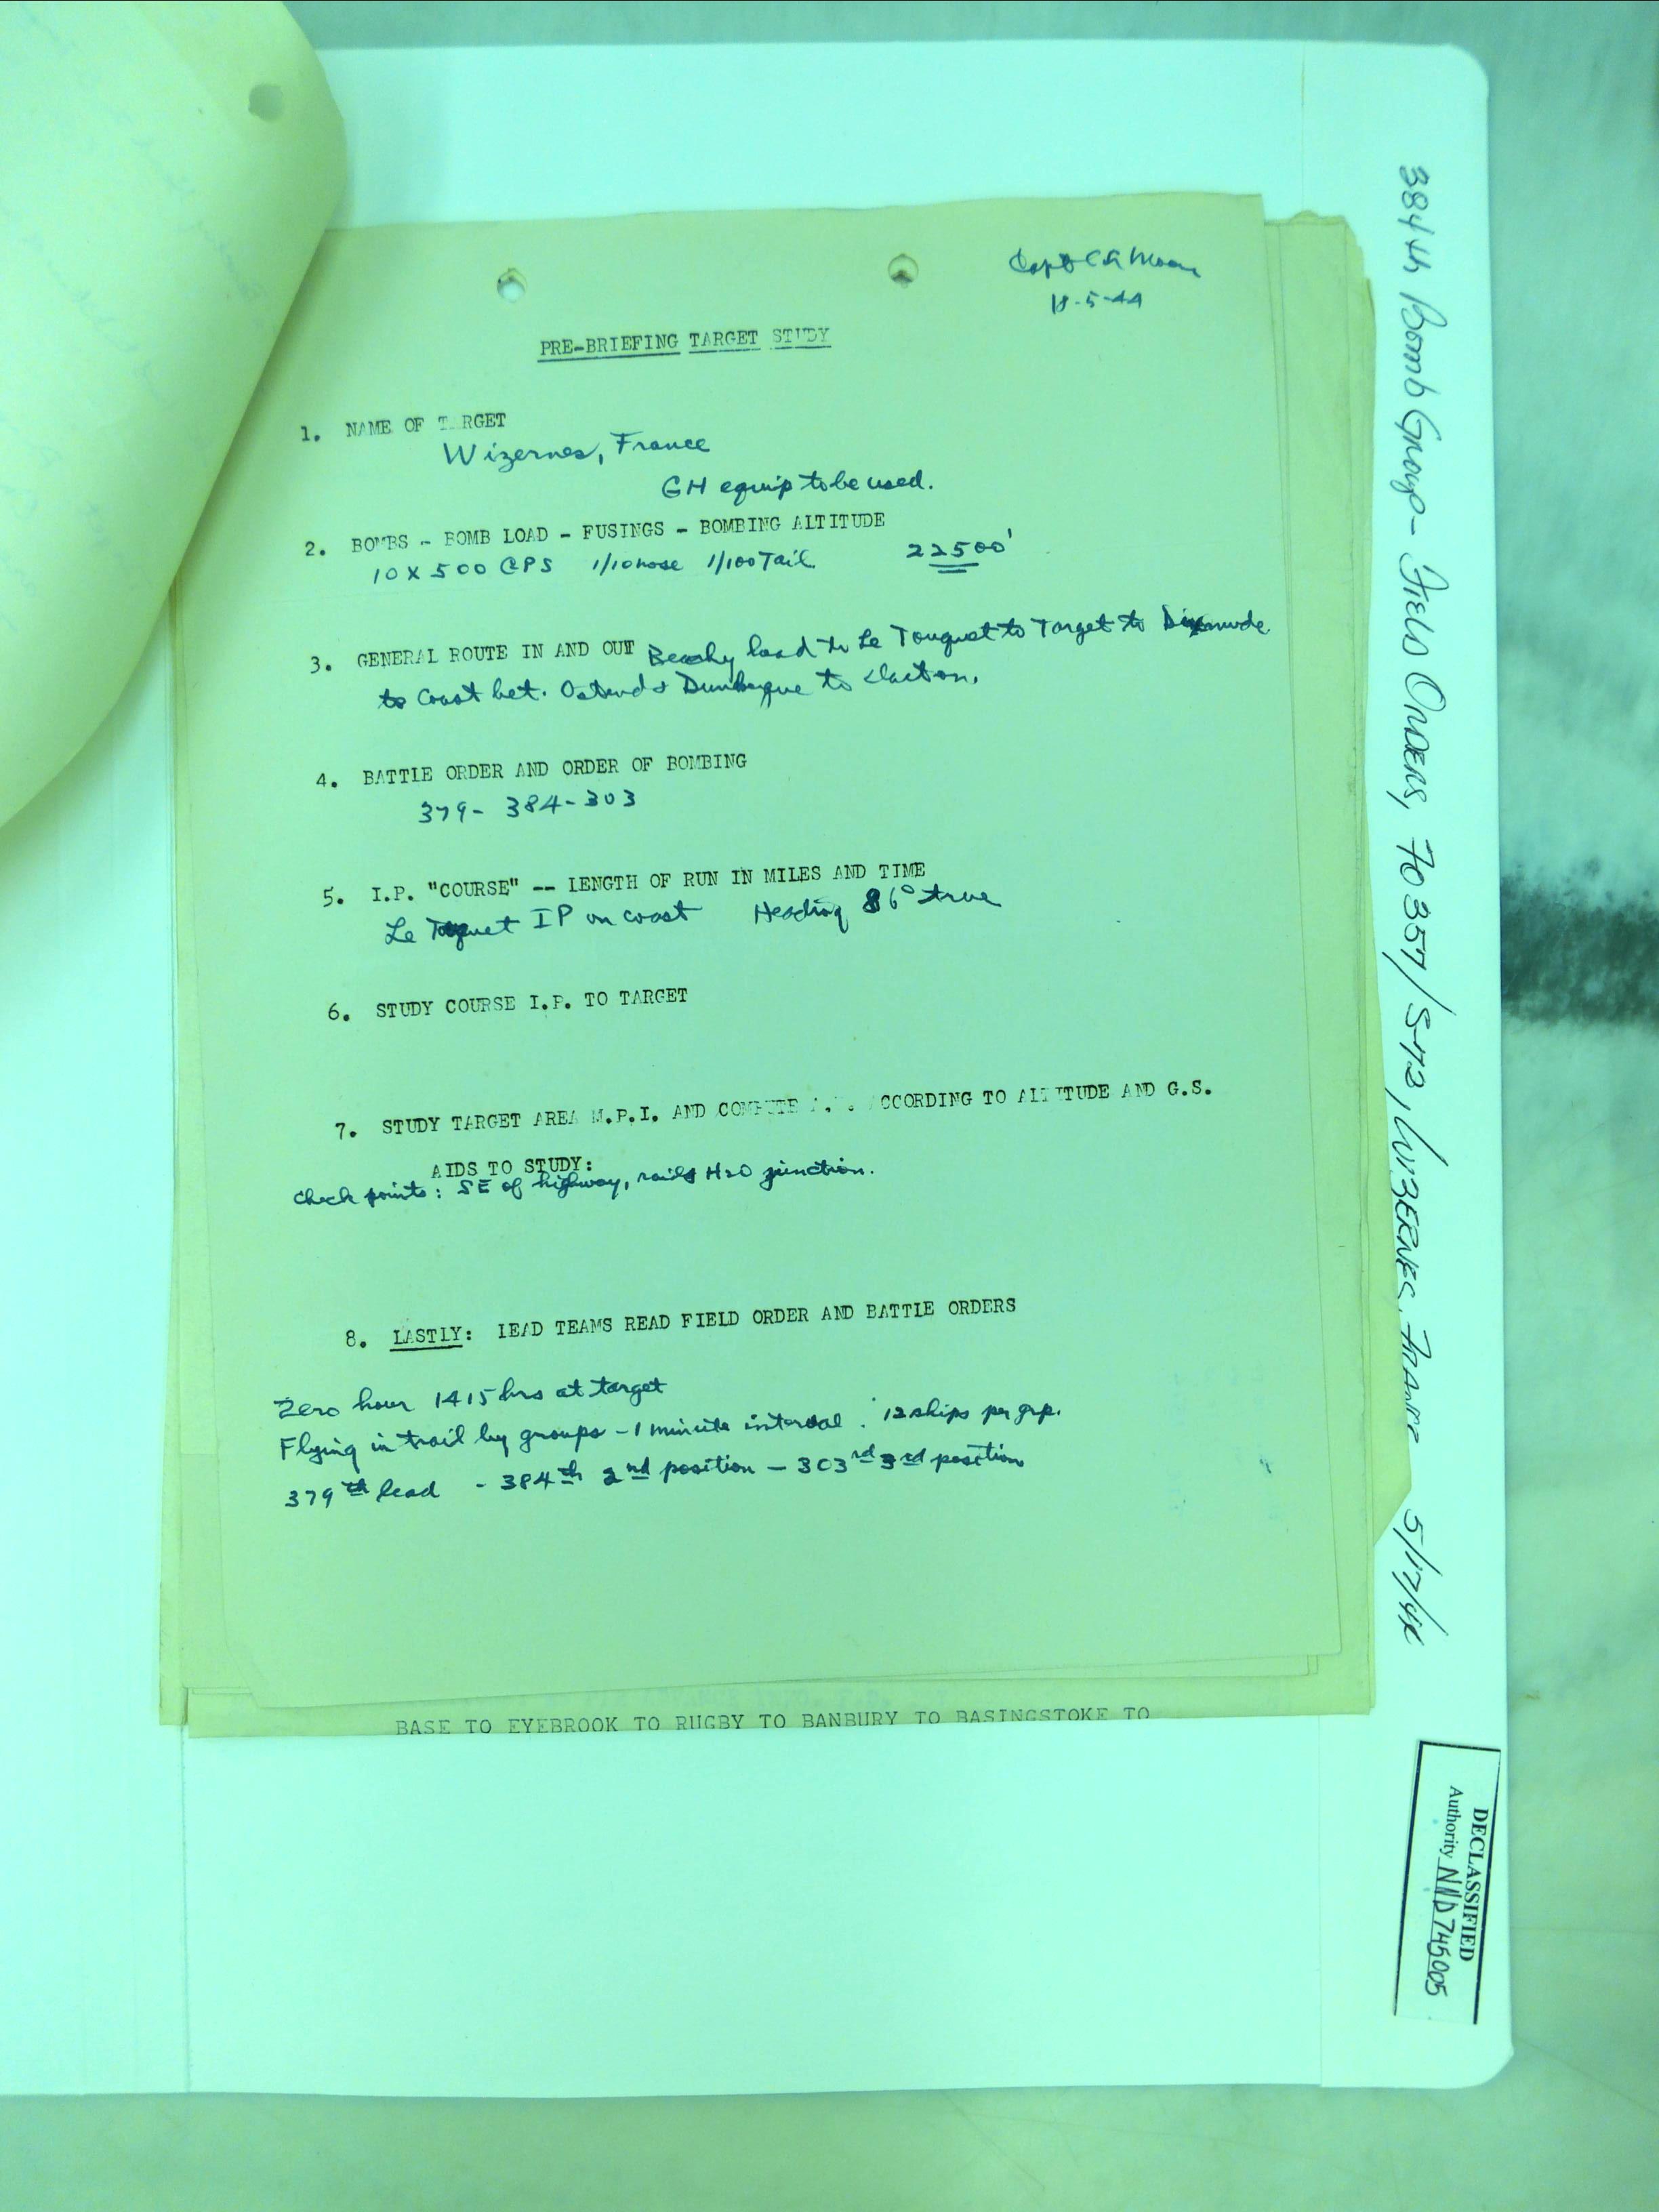 Capt C A Moore
18-5-44
PRE-BRIEFING TARGET STUDY
1. NAME OF T RGET
Wizernes, France
GH equip to be used.
2. BOMBS - BOMB LOAD - FUSINGS - BOMBING ALTITUDE
10 X 500 GPS 1/10 nose 1/100 Tail 22500'
3. GENERAL ROUTE IN AND OUT Beachy head to Le Touquet to Target to Dixmude
to Coast bet. Ostend & Dunkerque to Clacton.
4. BATTLE ORDER AND ORDER OF BOMBING
379 - 384 - 303
5. I.P. "COURSE" -- LENGTH OF RUN IN MILES AND TIME
Le Toquet IP on coast Heading 86° true
6. STUDY COURSE I.P. TO TARGET
7. STUDY TARGET AREA M.P.I. AND COMPUTE CCORDING TO ALTITUDE AND G.S.
AIDS TO STUDY:
Check points: SE of highway, rails H2O junction.
8. LASTLY: LEAD TEAMS READ FIELD ORDER AND BATTLE ORDERS
Zero hour 1415 hrs at target
Flying in trail by groups - 1 minute interval. 12 ships per grp.
379th lead - 384th 2nd position - 303rd 3rd position
BASE TO EYEBROOK TO RUGBY TO BANBURY TO BASINGSTOKE TO
384th Bomb Group - Field Orders, FO 357/S-173, Wizernes, France 5/17/44
DECLASSIFIED
Authority NND 745005